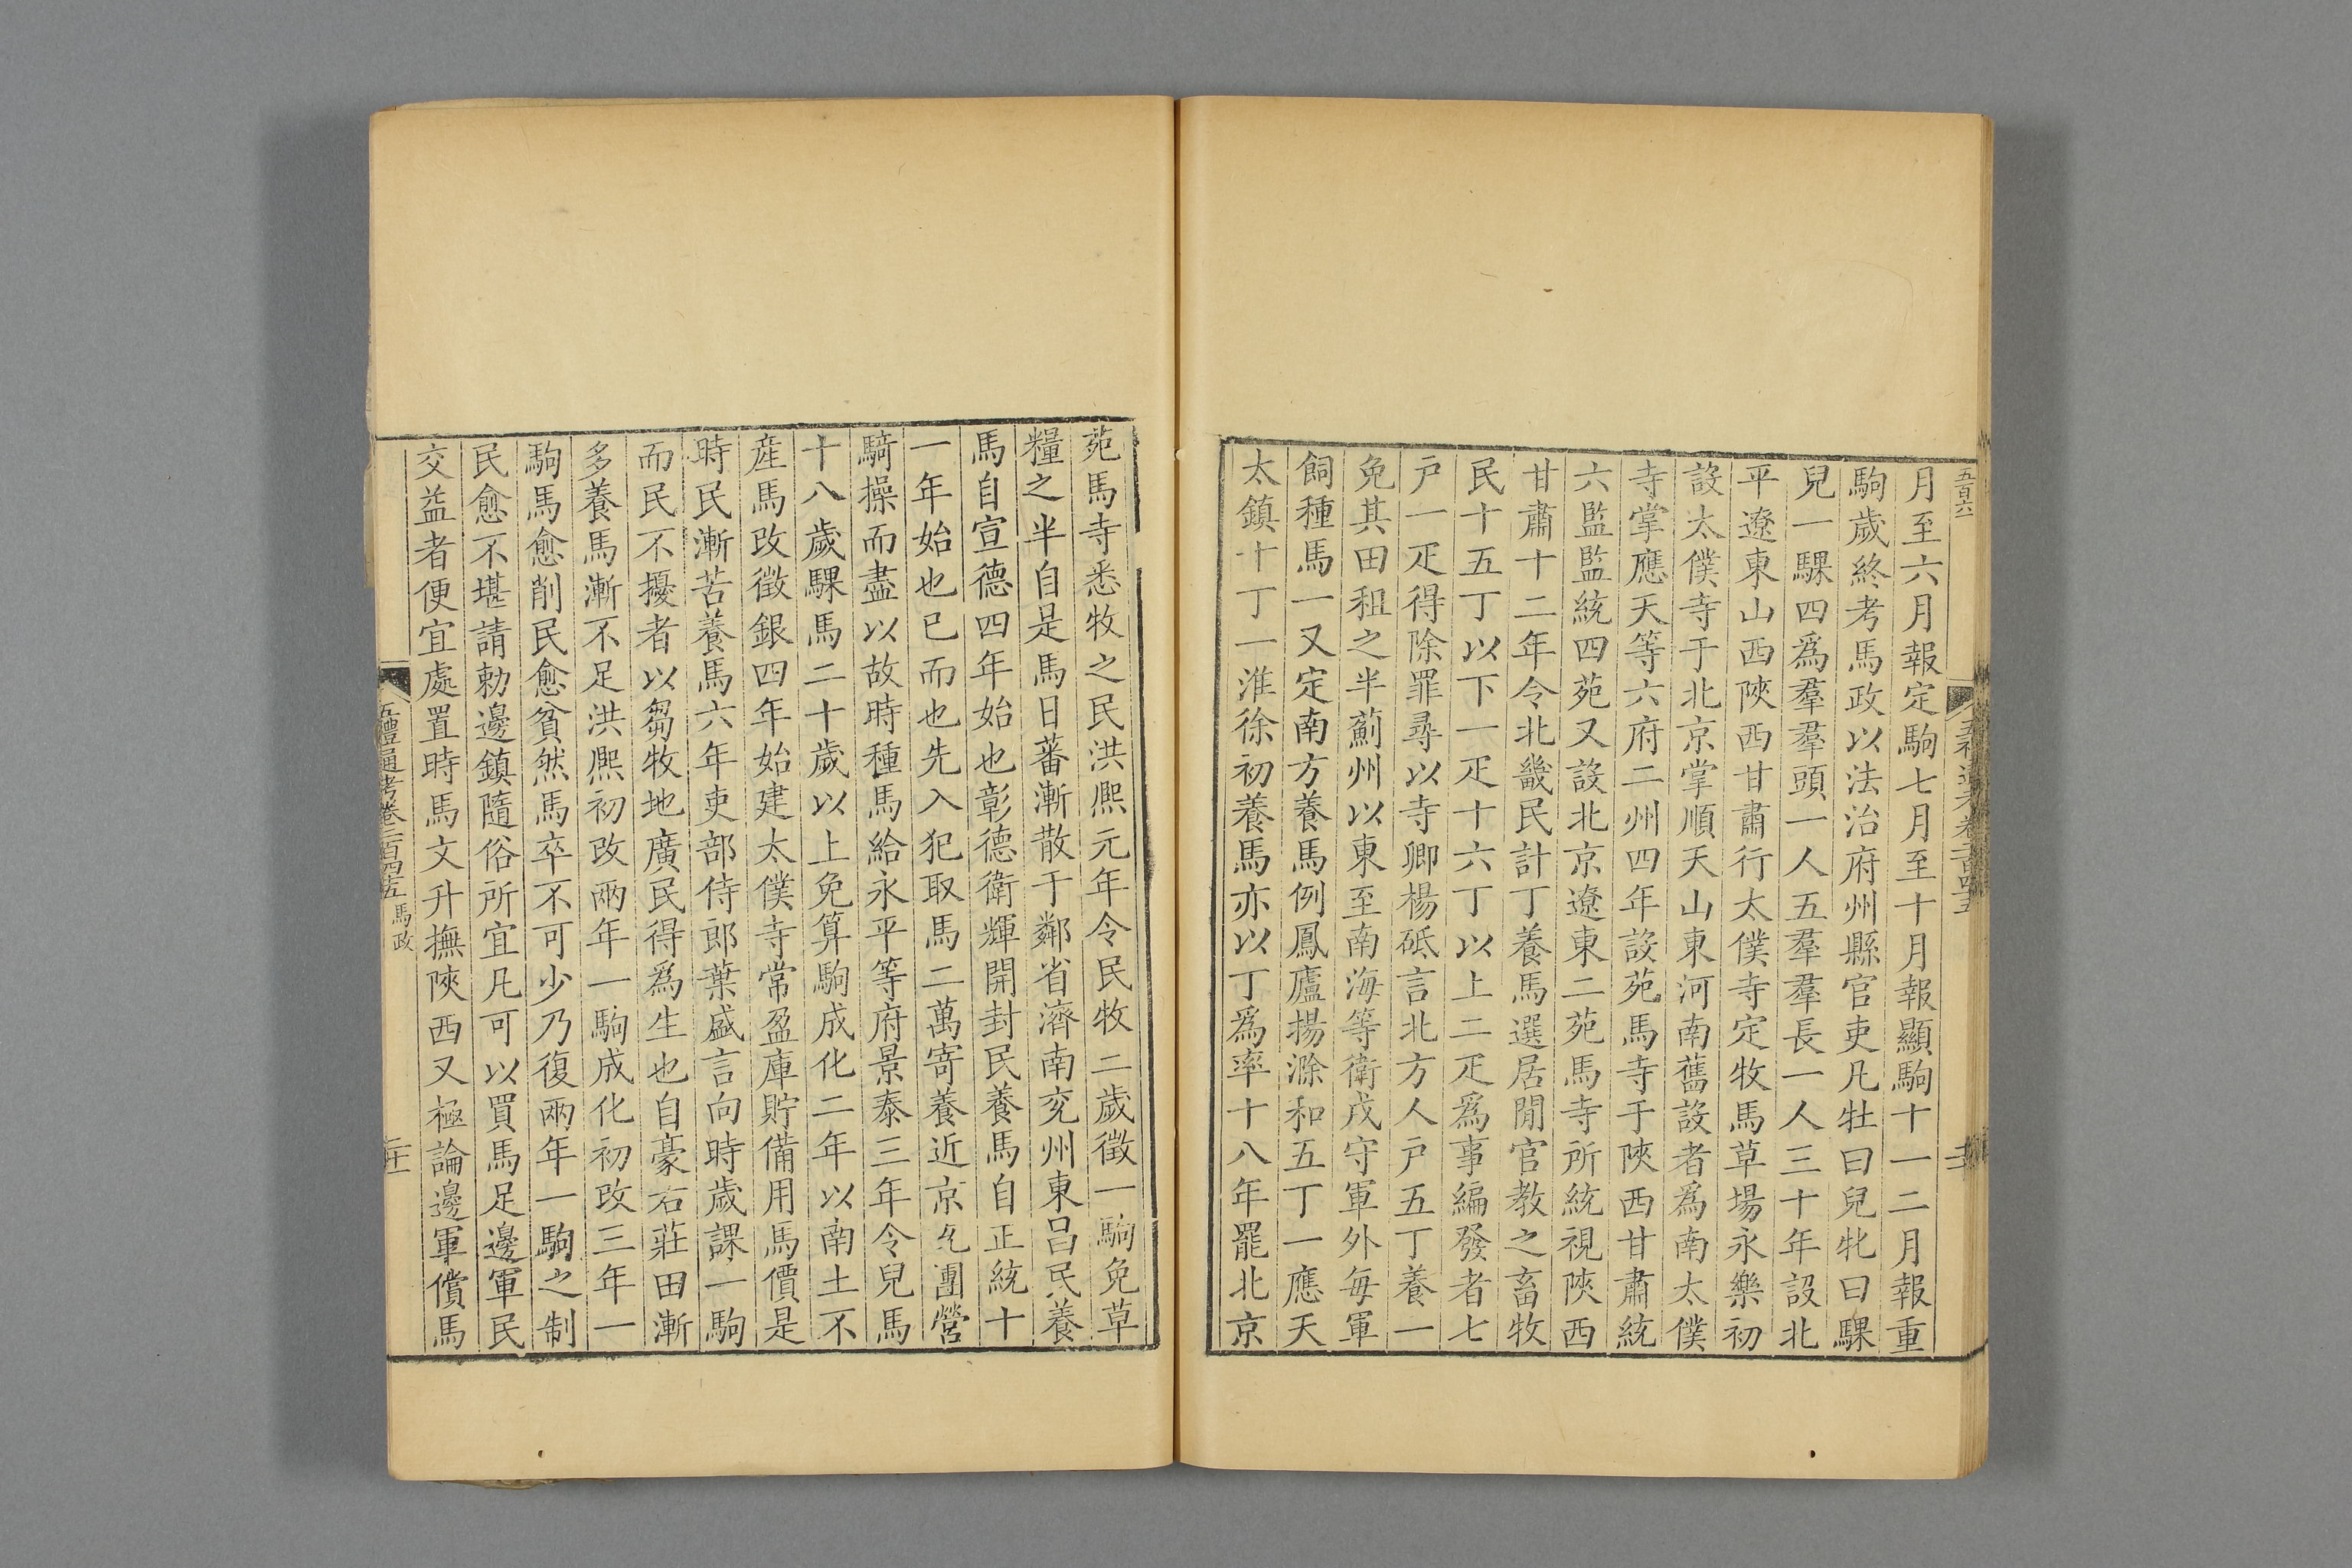 五百六
月至六月報定駒七月至十月報顯駒十一二月報重
駒歲終考馬政以法治府州縣官吏凡牡曰兒牝曰騍
兒一騍四爲羣羣頭一人五羣羣長一人三十年設北
平遼東山西陝西甘肅行太僕寺定牧馬草場永樂初
設太僕寺于北京掌順天山東河南舊設者爲南太僕
寺掌應天等六府二州四年設苑馬寺于陝西甘肅統
六監監統四苑又設北京遼東二苑馬寺所統視陝西
甘肅十二年令北畿民計丁養馬選居閒官教之畜牧
民十五丁以下一疋十六丁以上二疋爲事編發者七
戸一疋得除罪尋以寺卿楊砥言北方人戸五丁養一
免其田租之半薊州以東至南海等衛戍守軍外每軍
飼種馬一又定南方養馬例鳳廬揚滁和五丁一應天
太鎮十丁一淮徐初養馬亦以丁爲率十八年罷北京
苑馬寺悉牧之民洪熙元年令民牧二歲徵一駒免草
糧之半自是馬日蕃漸散于鄰省濟南兖州東昌民養
馬自宣德四年始也彰德衛輝開封民養馬自正統十
一年始也已而也先入犯取馬二萬寄養近京允團營
騎操而盡以故時種馬給永平等府景泰三年令兒馬
十八歲騍馬二十歲以上免算駒成化二年以南土不
產馬改徵銀四年始建太僕寺常盈庫貯備用馬價是
時民漸苦養馬六年吏部侍郎葉盛言向時歲課一駒
而民不擾者以芻牧地廣民得爲生也自豪右莊田漸
多養馬漸不足洪熙初改兩年一駒成化初改三年一
駒馬愈削民愈貧然馬卒不可少乃復兩年一駒之制
民愈不堪請勅邊鎮隨俗所宜凡可以買馬足邊軍民
交益者便宜處置時馬文升撫陝西又極論邊軍償馬
五禮通考卷二百四十五 馬政